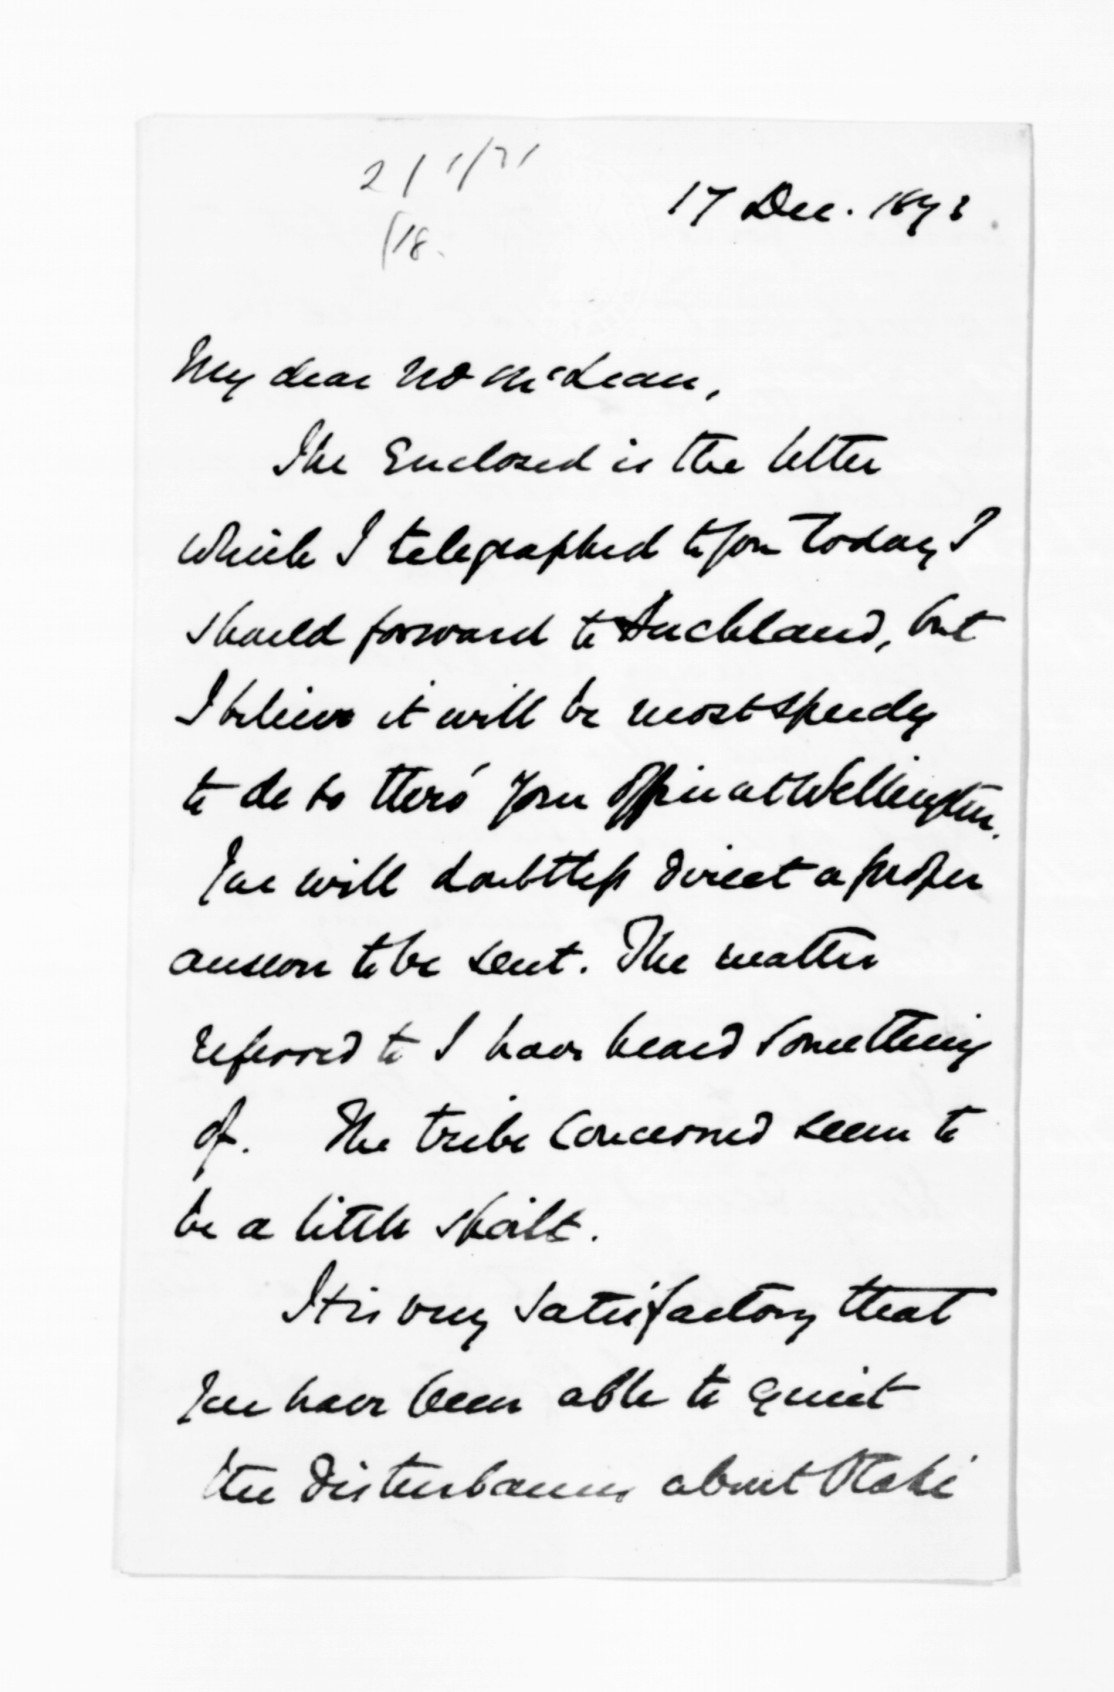 17 Dec. 1873
My dear Mr McLean,
The Enclosed is the letter
which I telegraphed to you today I
should forward to Auckland, but
I believe it will be most speedy
to do so thero' your office at Wellington.
You will doubtless direct a proper
answer to be sent. The matter
referred to I have heard something
of. The tribe concerned seem to
be a little spoilt.
It is very satisfactory that
you have been able to quiet
the disturbances about Otaki